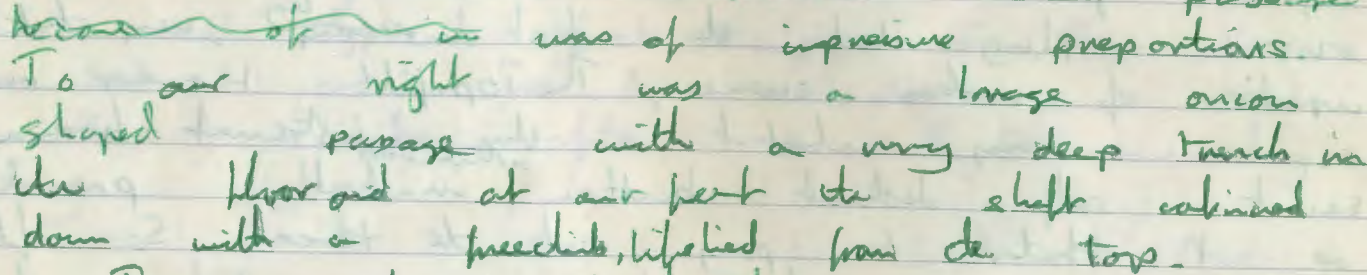 was of impressive proportions.
To our right was a large onion
shaped passage with a very deep trench in
the floor and at our feet the shaft continued
down with a freeclimb, lifelined from the top.